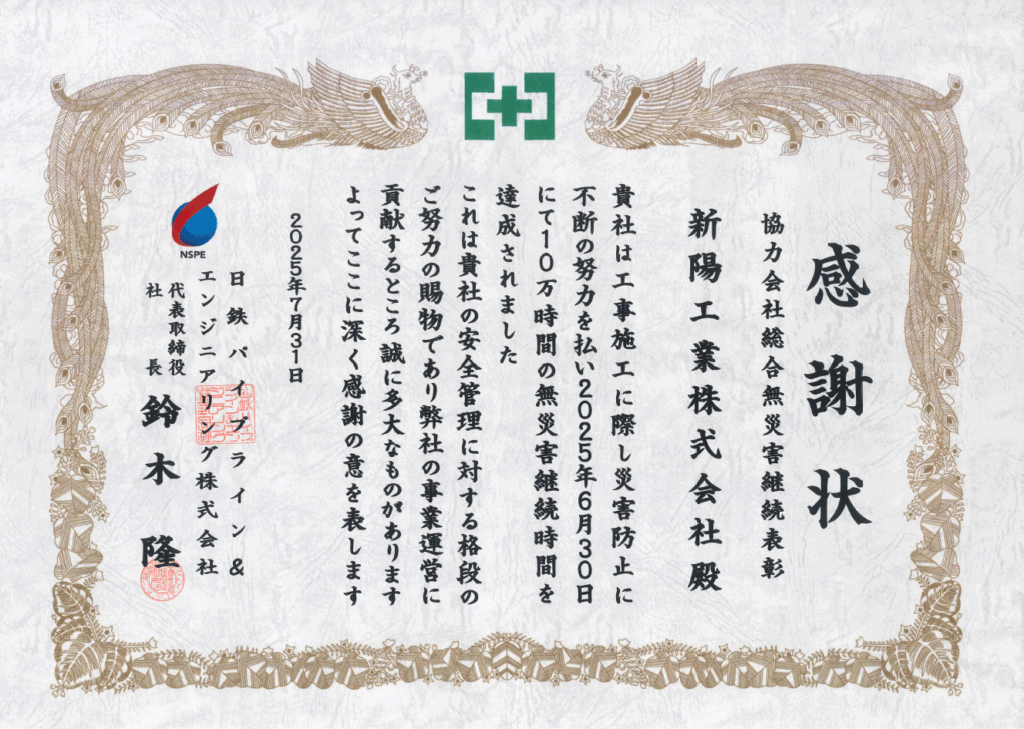 感謝状
協力会社総合無災害継続表彰
新陽工業株式会社殿
貴社は工事施工に際し災害防止に
不断の努力を払い2025年6月30日
にて10万時間の無災害継続時間を
達成されました
これは貴社の安全管理に対する格段の
ご努力の賜物であり弊社の事業運営に
貢献するところ誠に多大なものがあります
よってここに深く感謝の意を表します
2025年7月31日
NSPE
日鉄パイプライン&
エンジニアリング株式会社
代表取締役
社長
鈴木隆